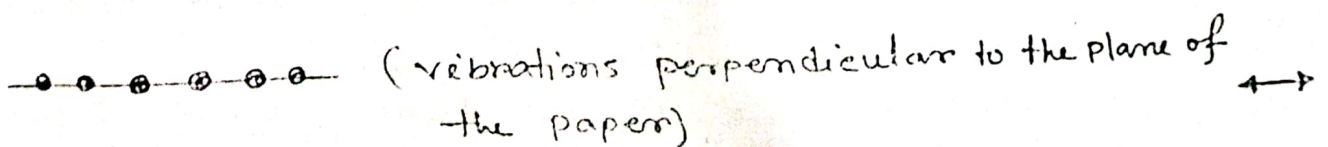 (vibrations perpendicular to the plane of
the paper)